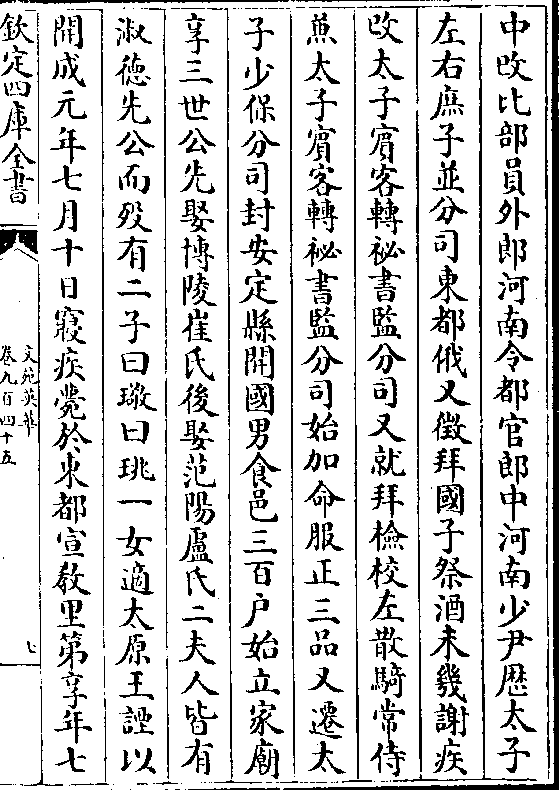 中改比部員外郎河南令都官郎中河南少尹歴太子
左右庶子並分司東都俄又徴拜國子祭酒未幾謝疾
改太子賓客轉祕書監分司又就拜檢校左散騎常侍
兼太子賓客轉祕書監分司始加命服正三品又遷太
子少保分司封安定縣開國男食邑三百户始立家廟
享三世公先娶博陵崔氏後娶范陽盧氏二夫人皆有
淑徳先公而殁有二子曰璥曰珧一女適太原王諲以
開成元年七月十日寢疾薨於東都宣教里第享年七
欽定四庫全書
文苑英華
卷九百四十五
七